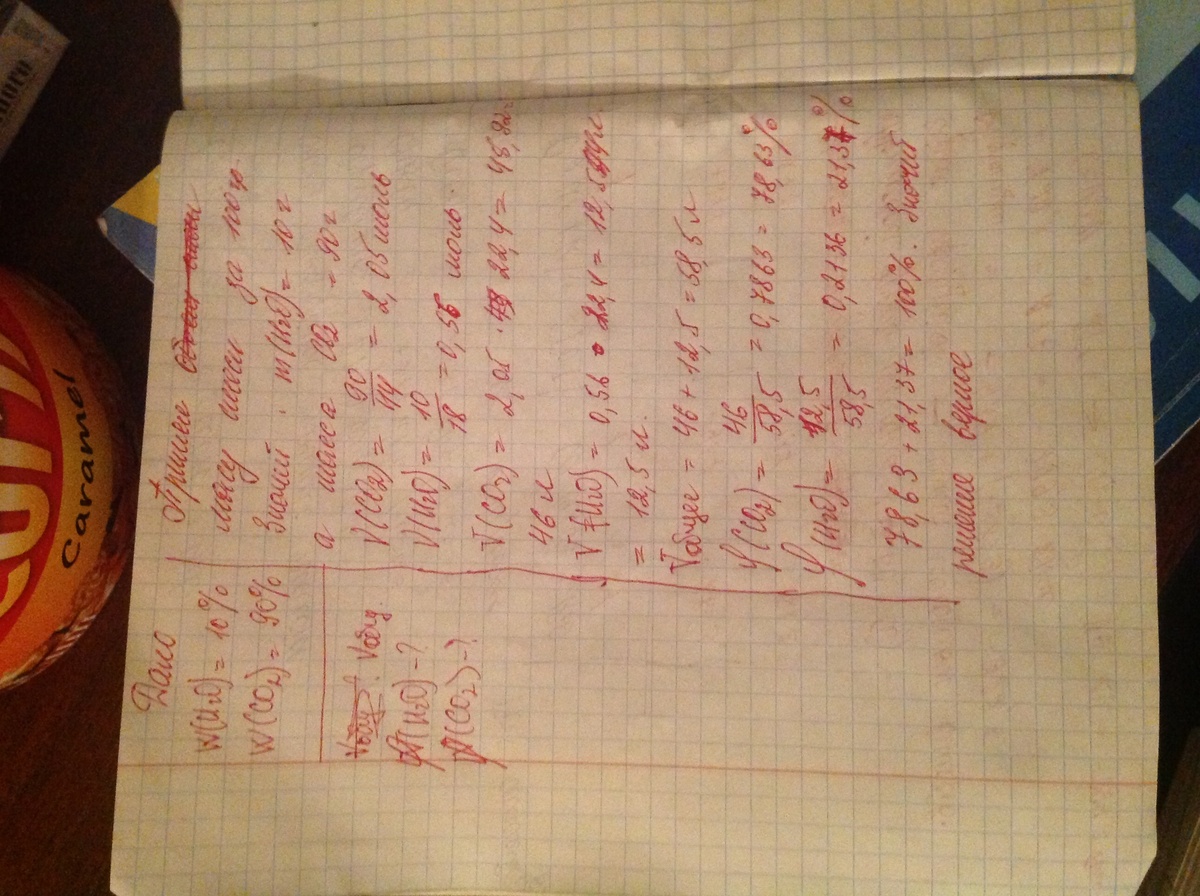 Дано
W(H2O) = 10%
W(CO2) = 90%
Vобщ.
φ(H2O) -?
φ(CO2) -?
Примем
массу смеси за 100гр.
Значит. m(H2O) = 10 г
а масса CO2 = 90г
V(CO2) = 90/44 = 2,05 моль
V(H2O) = 10/18 = 0,56 моль
V(CO2) = 2,05 · 22,4 = 45,92=
46 л
V(H2O) = 0,56 • 22,4 = 12,5
= 12,5 л.
Vобщее = 46 + 12,5 = 58,5 л
φ(CO2) = 46/58,5 = 0,7863 = 78,63%
φ(H2O) = 12,5/58,5 = 0,2136 = 21,37%
78,63 + 21,37 = 100%. Значит
решение верное
Caramel